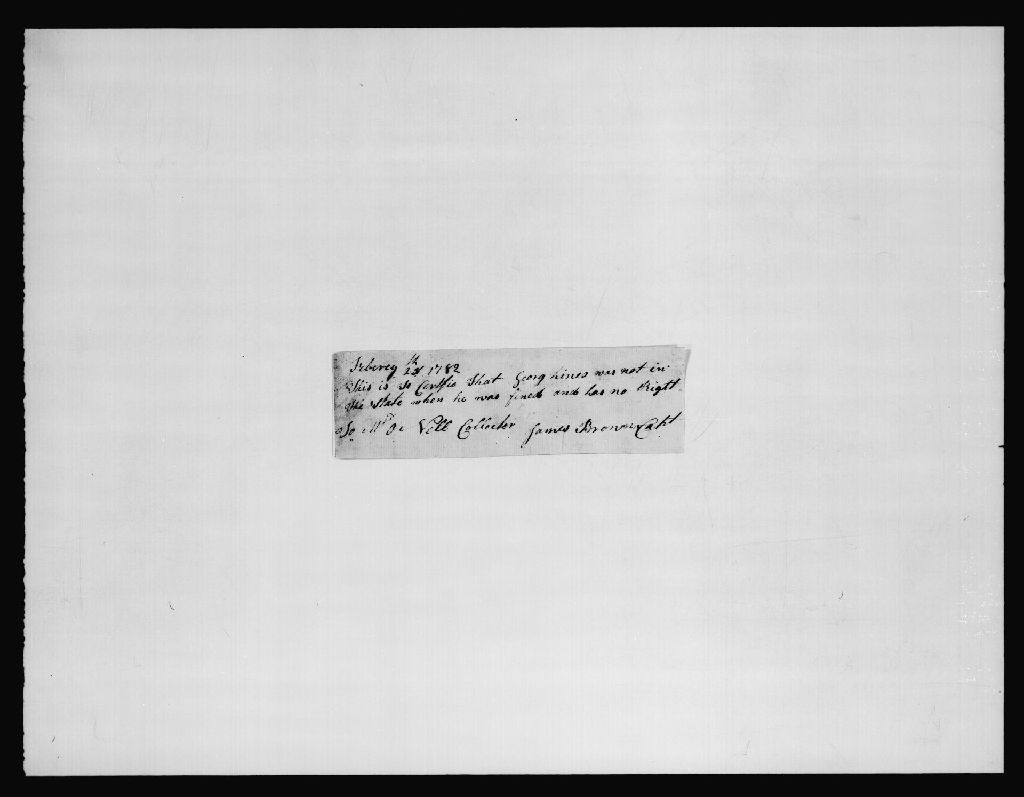 Feberey 24th 1782
This is to Certfie that Georg hines was not in
the State when he was fined and has no Right
To Mr De Vill Collector James Brown Capt